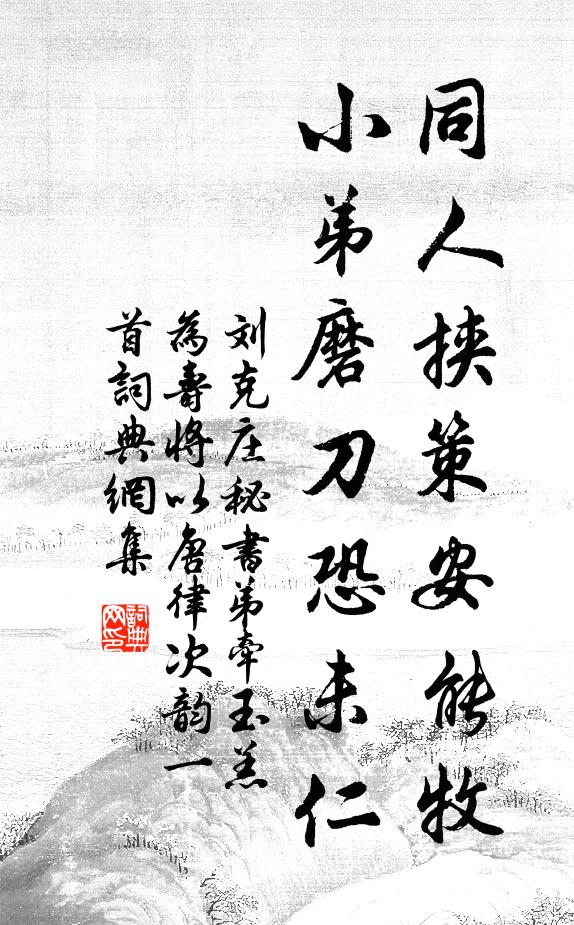 同人挟策安能牧
小弟磨刀恐未仁
刘克庄秘书弟牵玉羔
為壽将以唐律次韵一
首詞典網集
詞典
网印